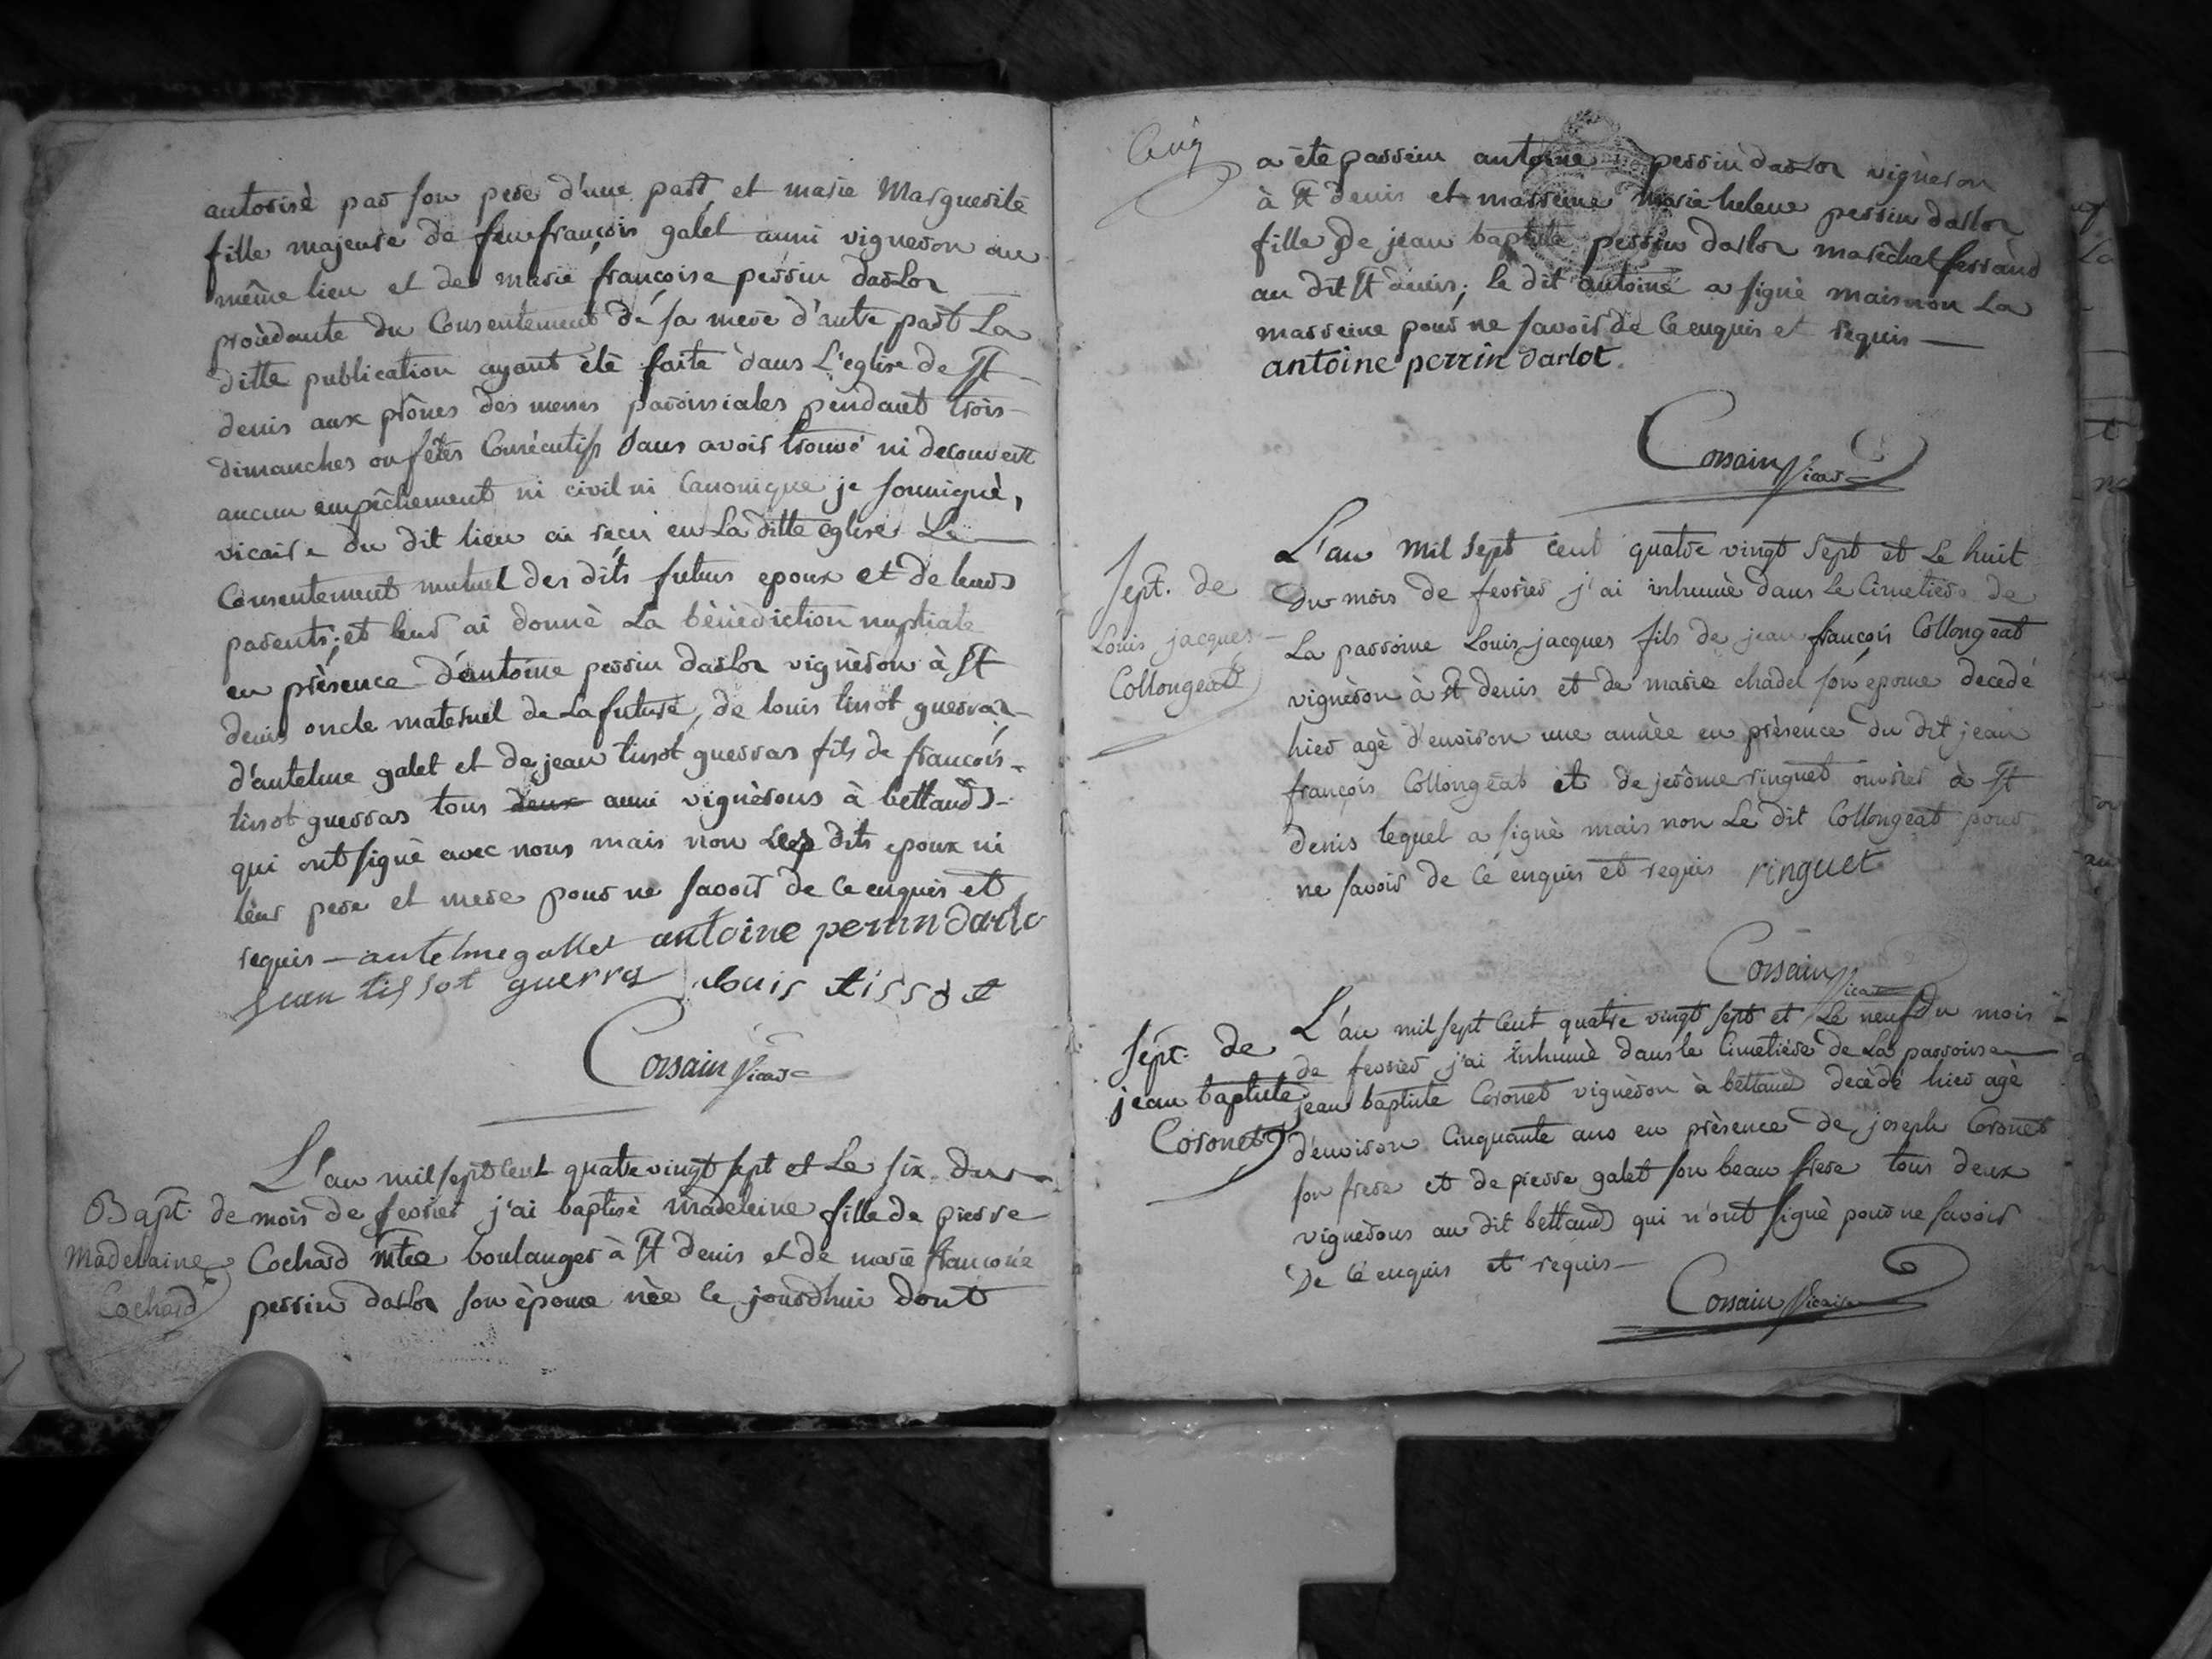 autorisè par son pere d'une part et marie Marguerite
fille majeure de feu françois galet aussi vigneron au
même lieu et de marie françoise perrin darlot
procèdante du Consentement de sa mere d'autre part La
ditte publication ayant été faite dans L'eglise de St
denis aux prônes des messes paroissiales pendant trois
dimanches ou fêtes Consécutifs sans avoir trouvé ni decouvert
aucun empêchement ni civil ni Canonique je soussignè,
vicaire du dit lieu ai reçu en La ditte eglise Le
Consentement mutuel des dits futurs epoux et de leurs
parents; et leur ai donnè La bènèdiction nuptiale
en prèsence d'antoine perrin darlot vignèron à St
denis oncle maternel de La future, de louis tissot guerraz
d'antelme galet et de jean tissot guerras fils de françois
tissot guerras tous deux aussi vignèrons à bettand
qui ont signè avec nous mais non Les dits epoux ni
leur pere et mere pour ne savoir de Ce enquis et
requis — antelme gallet antoine perrin darlo
jean tissot guerras louis tissot
Corsain Vicaire
Bapt. de
Madelaine
Cochard
L'an mil sept Cent quatre vingt sept et Le six du
mois de fevrier j'ai baptisè madeleine fille de pierre
Cochard mtre boulanger à St denis et de marie françoise
perrin darlot son èpouse nèe le jourdhui dont
Cinq
a ètè parrein antoine perrin darlot vignèron
à St denis et marreine marie helene perrin darlot
fille de jean baptiste perrin darlot marêchal ferrand
au dit St denis; le dit antoine a signè mais non La
marreine pour ne savoir de Ce enquis et requis —
antoine perrin darlot.
Corsain Vicaire
Sept. de
Louis jacques
Collongeat
L'an mil sept cent quatre vingt sept et Le huit
du mois de fevrier j'ai inhumè dans Le Cimetiere de
La parroisse Louis jacques fils de jean françois Collongeat
vignèron à St denis et de marie chadel son epouse decedé
hier agè d'environ une annèe en prèsence du dit jean
françois Collongeat et de jerôme ringuet ouvrier à St
denis lequel a signè mais non Le dit Collongeat pour
ne savoir de Ce enquis et requis ringuet
Corsain Vicaire
Sept. de
jean baptiste
Coronet
L'an mil sept Cent quatre vingt sept et Le neuf du mois
de fevrier j'ai inhumè dans le Cimetière de La parroisse
jean baptiste Coronet vignèron à bettand decèdè hier agè
d'environ Cinquante ans en prèsence de joseph Coronet
son frere et de pierre galet son beau frere tous deux
vignèrons au dit bettand qui n'ont signè pour ne savoir
De Cè enquis et requis —
Corsain Vicaire